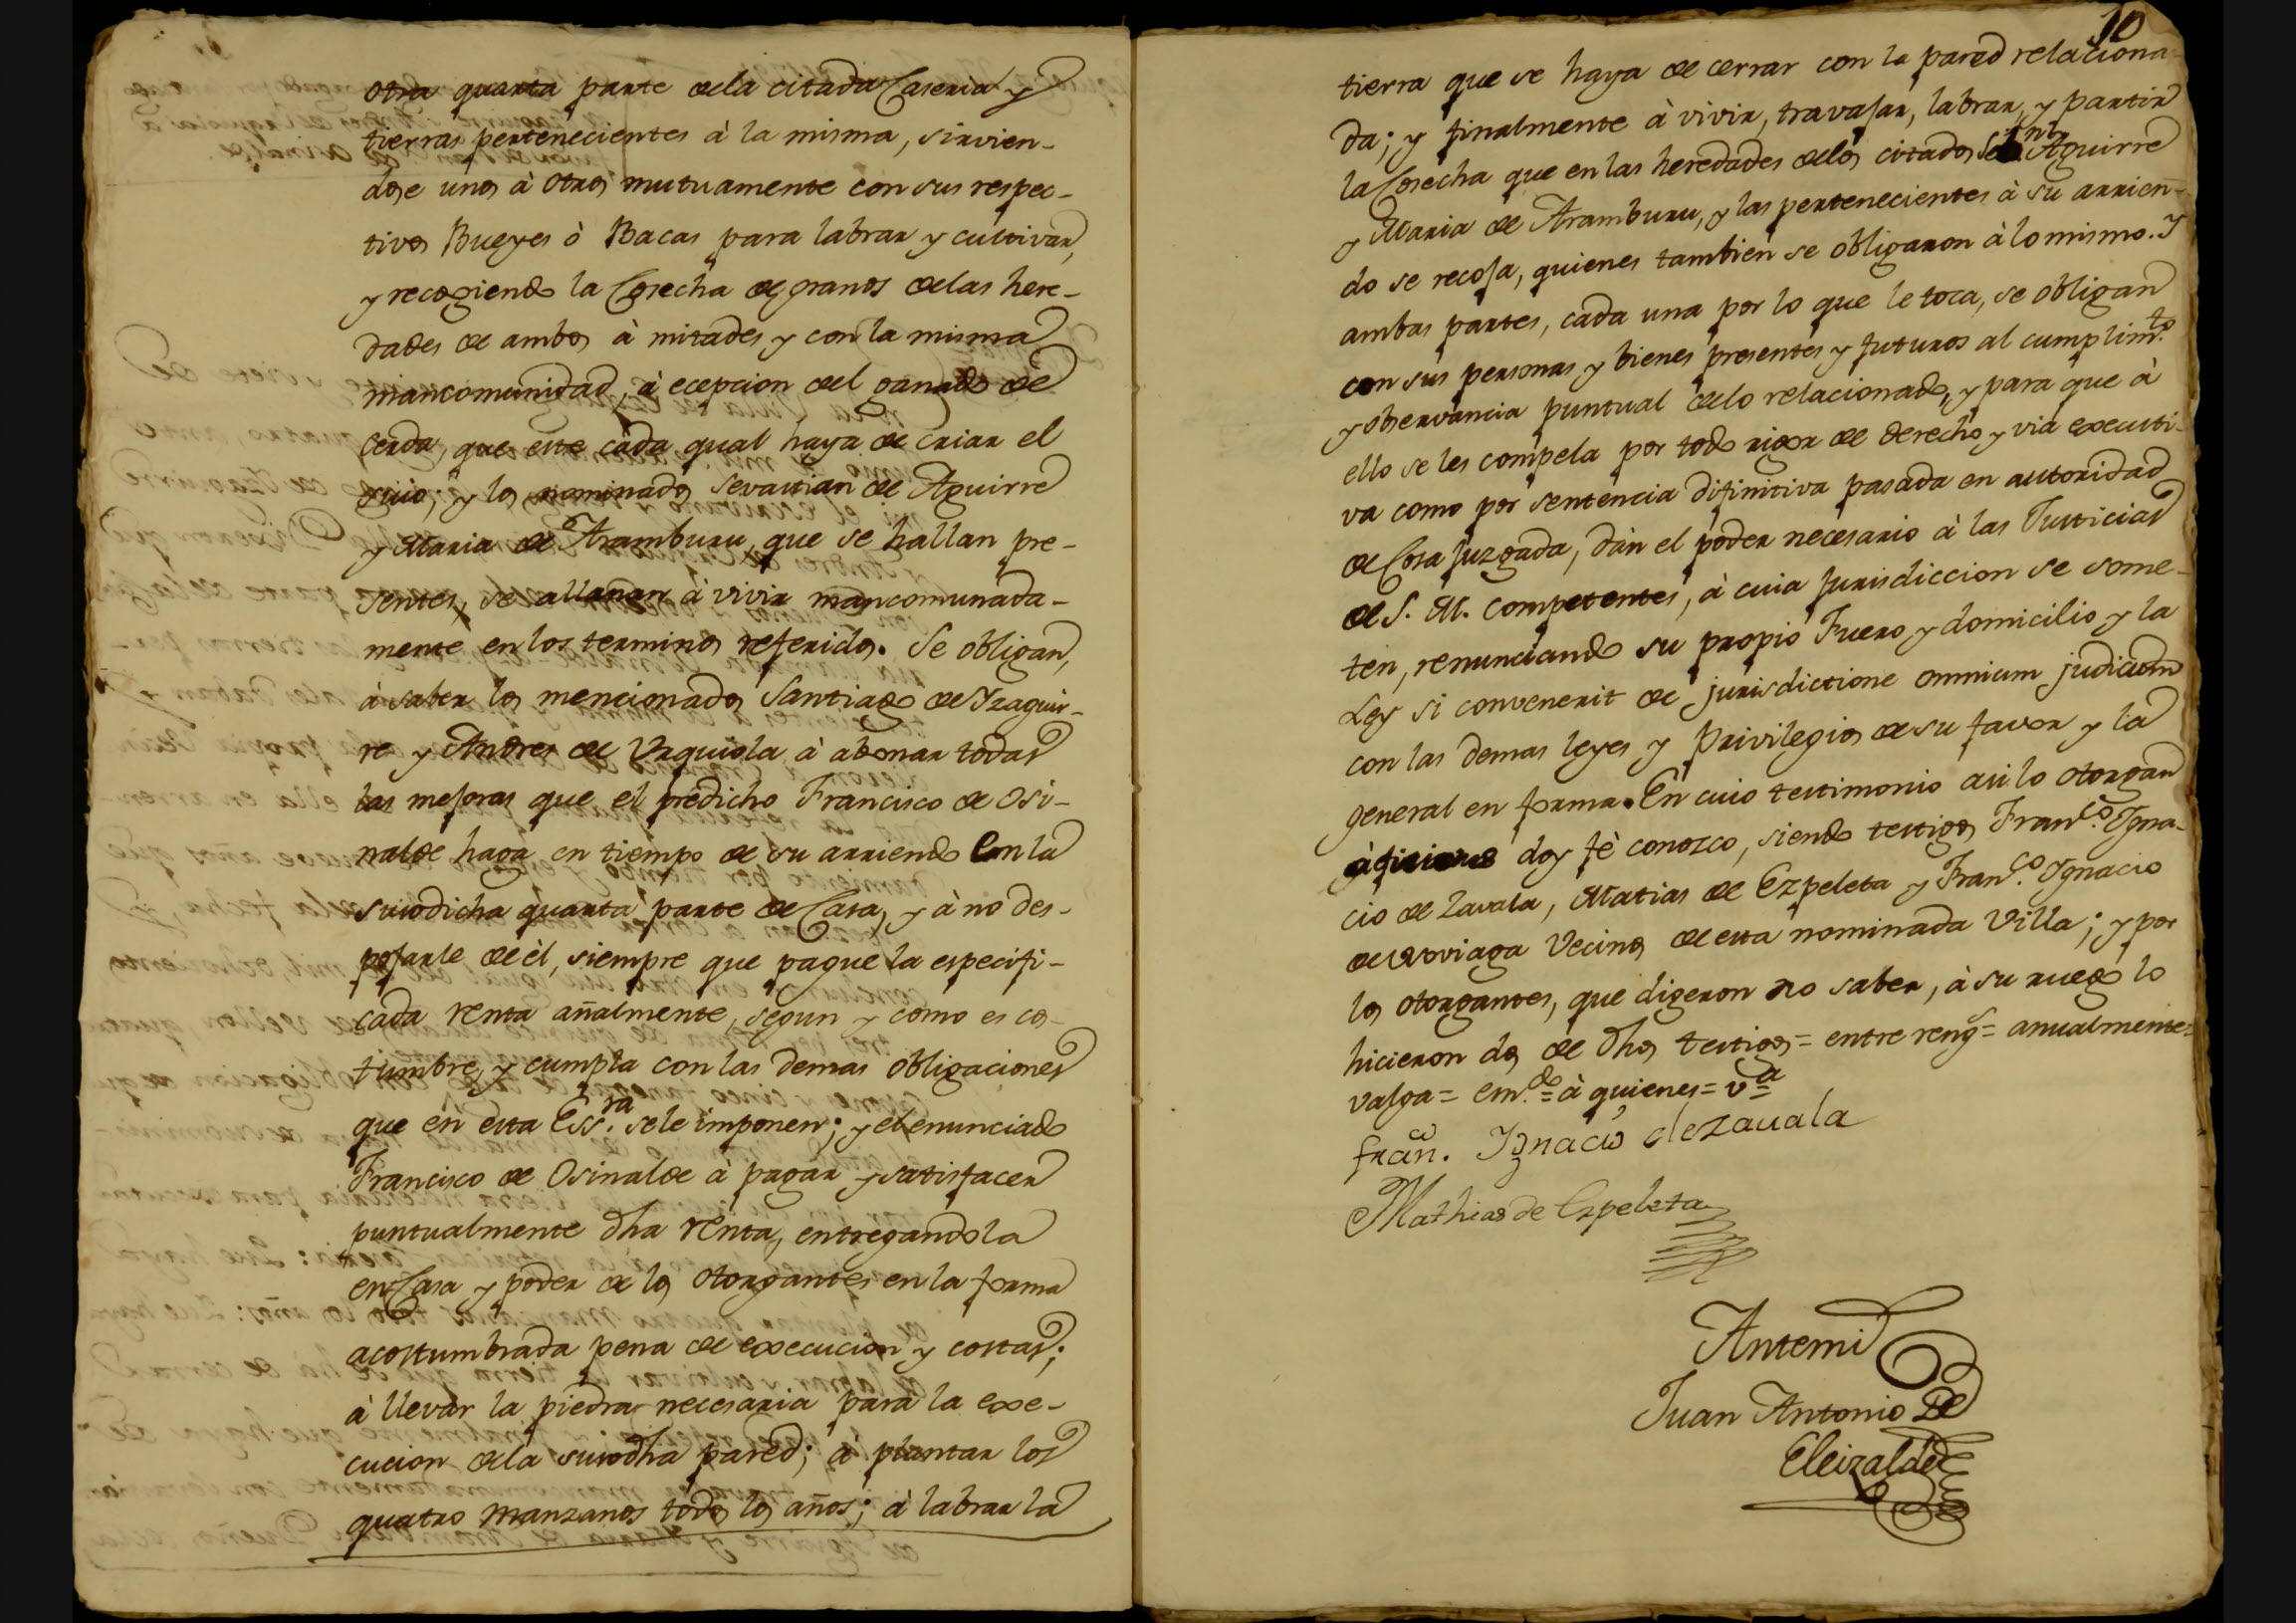 otra quarta parte de la citada Caseria y
tierras pertenecientes à la misma, sirvien-
dose unos à otros mutuamente con sus respec-
tivos Bueyes ò Bacas para labrar y cultivar,
y recogiendo la Cosecha de granos de las here-
dades de ambos à mitades y con la misma
mancomunidad, à ecepcion del ganado de
cerda, que este cada qual haya de criar el
suio; y los nominados Sevastian de Aguirre
y Maria de Aramburu, que se hallan pre-
sentes, se allanan à vivir mancomunada-
mente en los terminos referidos. Se obligan,
à saber los mencionados Santiago de Yzaguir-
re y Andres de Urquiola à abonar todas
las mejoras que el predicho Francisco de Osi-
nalde haga en tiempo de su arriendo en la
susodicha quarta parte de Casa, y à no des-
pojarle de èl, siempre que pague la especifi-
cada renta añalmente, segun y como es cos-
tumbre, y cumpla con las demas obligaciones
que en esta Essra. se le imponen; y el enunciado
Francisco de Osinalde à pagar y satisfacer
puntualmente dha renta, entregandola
en Casa y poder de los otorgantes en la forma
acostumbrada pena de execucion y costas;
à llevar la piedra necesaria para la exe-
cucion de la susodha pared; à plantar los
quatro manzanos todos los años; à labrar la
10
tierra que se haya de cerrar con la pared relaciona-
da; y finalmente à vivir, travajar, labrar, y partir
la Cosecha que en las heredades de los citados Sebn. Aguirre
y Maria de Aramburu, y las pertenecientes à su arrien-
do se recoja, quienes tambien se obligaron à lo mismo. Y
ambas partes, cada una por lo que le toca, se obligan
con sus personas y bienes presentes y futuros al cumplimto.
y observancia puntual de lo relacionado, y para que à
ello se les compela por todo rigor de derecho y via executi-
va como por sentencia difinitiva pasada en autoridad
de Cosa juzgada, dàn el poder necesario à las Justicias
de S. M. competentes, à cuia jurisdiccion se some-
ten, renunciando su propio Fuero y domicilio y la
Ley si convenerit de jurisdictione omnium judicum
con las demas leyes y Privilegios de su favor y la
general en forma. En cuio testimonio asi lo otorgan
à quienes doy fè conozco, siendo testigos Franco. Ygna-
cio de Zavala, Matias de Ezpeleta y Franco. Ygnacio
de Vecinos de esta nominada Villa; y por
los otorgantes, que digeron no saber, à su ruego lo
hicieron dos de dhos testigos = entre rengs = anualmente =
valga = emdo. = à quienes = va
francco. Ygnacio de Zauala
Mathias de Ezpeleta
Antemi
Juan Antonio De
Eleizalde